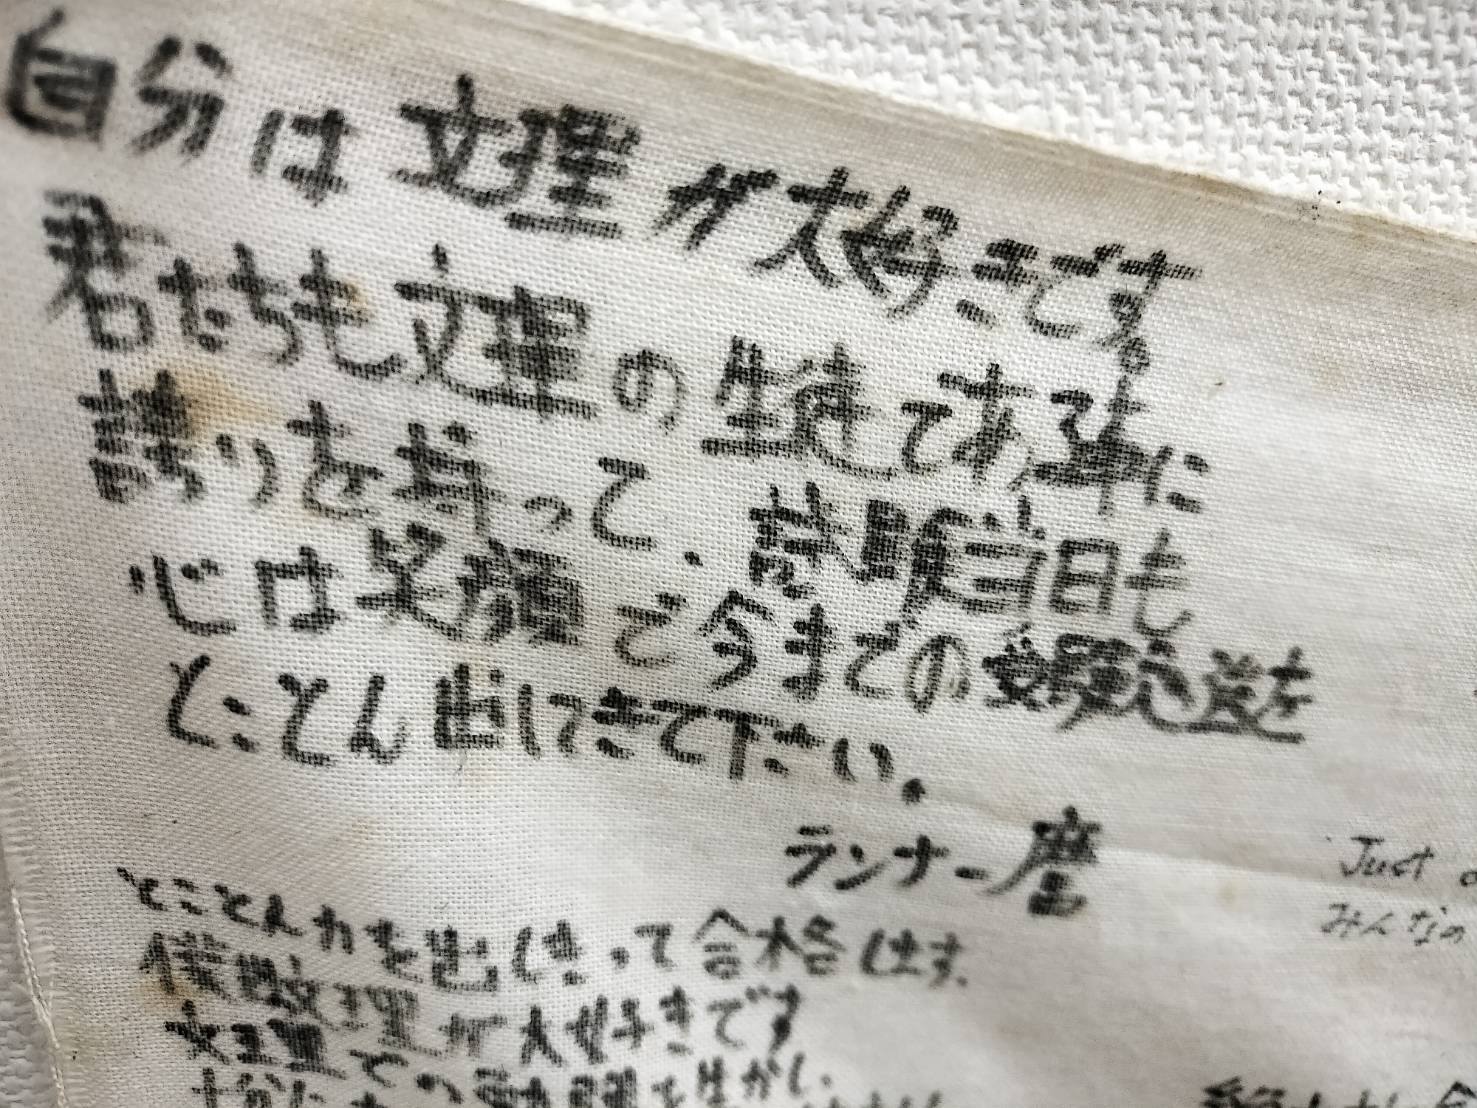 自分は文理が大好きです。
君たちも文理の生徒である事に
誇りを持って、試験当日も
心は笑顔で今までの受験勉強を
とことん出しきて下さい。
ランナー麿
とことん力を出しきって合格します。
僕は文理が大好きです
文理での
Just
みんなの